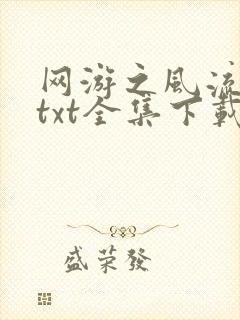 网游之风流
txt全集下载
盛荣發